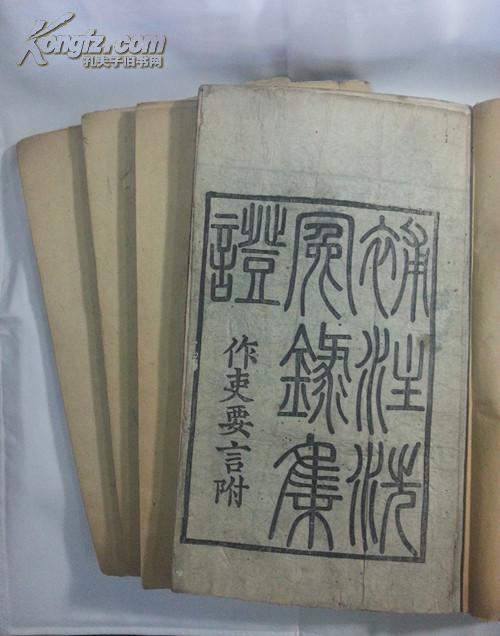 Kongfz.com
孔夫子旧书网
補注洗
冤錄集
證
作吏要言附